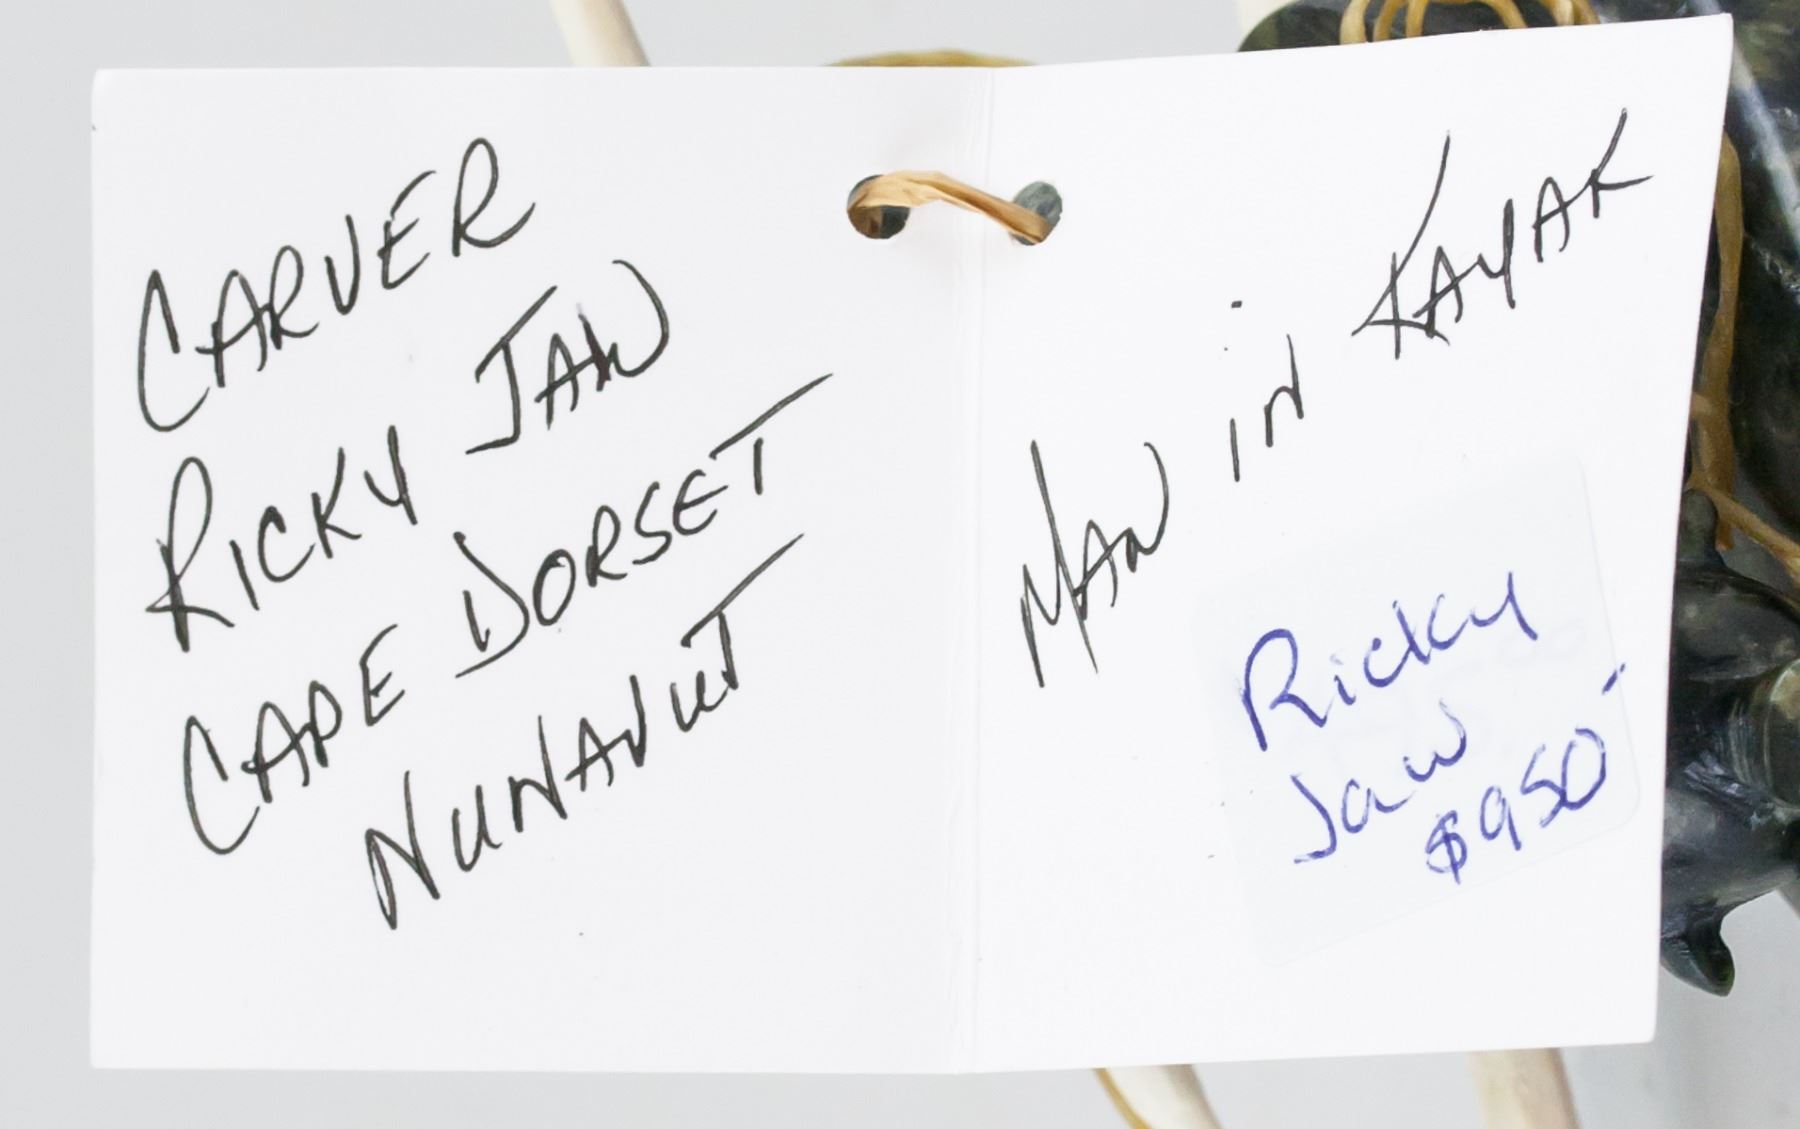 CARVER
RICKY JAW
CAPE DORSET
NUNAVUT
MAN iN KAYAK
Ricky
Jaw
$950-